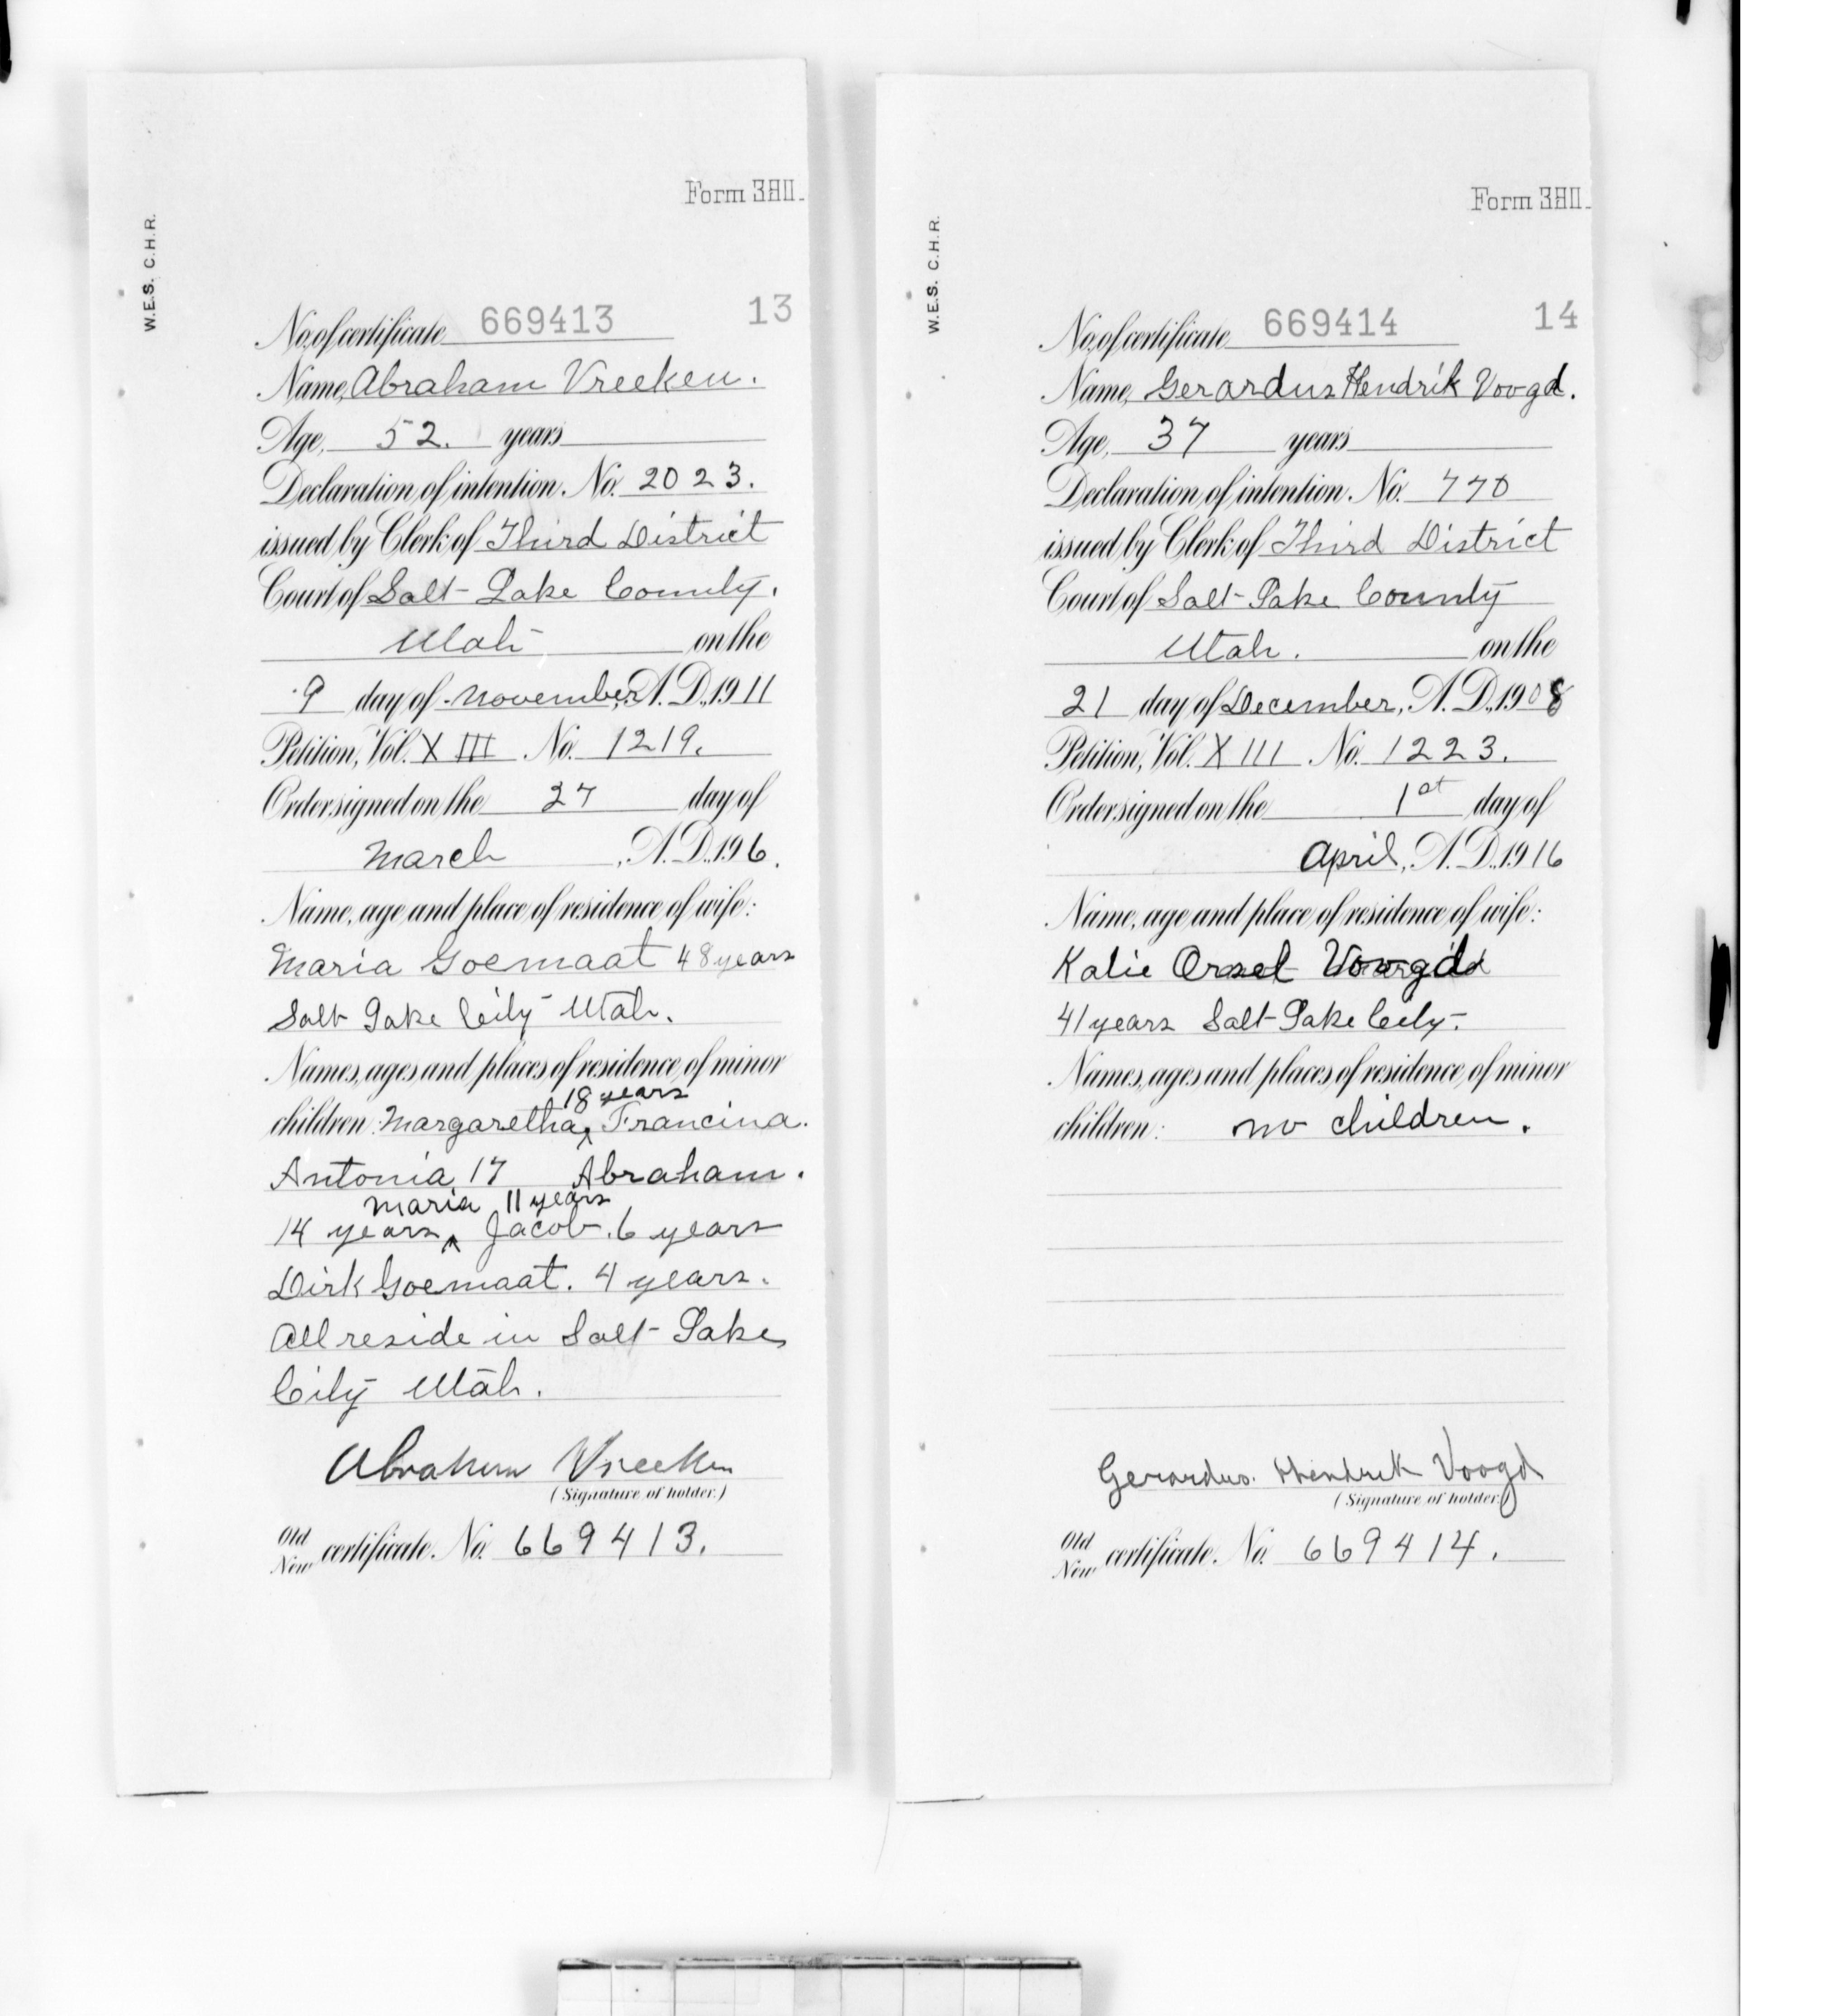 Form 3811.
W.E.S. C.H.R.
No. of certificate 669413 13
Name, Abraham Vreeken.
Age, 52. years
Declaration of intention. No. 2023.
issued by Clerk of Third District
Court of Salt Lake County.
Utah on the
9 day of November, A. D., 1911
Petition, Vol. XIII No. 1219.
Order signed on the 27 day of
March, A. D., 196.
Name, age and place of residence of wife:
Maria Goemaat 48 years
Salt Lake City Utah.
Names, ages and places of residence of minor
18 years
children: Margaretha, Francina.
Antonia 17 Abraham.
Maria 11 years
14 years Jacob. 6 years
Dirk Goemaat. 4 years.
All reside in Salt Lake
City Utah.
Abraham Vreeken
(Signature of holder.)
Old
New certificate. No. 669413.
Form 3811.
W.E.S. C.H.R.
No. of certificate 669414 14
Name, Gerardus Hendrik Voogd.
Age, 37 years
Declaration of intention. No. 770
issued by Clerk of Third District
Court of Salt Lake County
Utah. on the
21 day of December, A. D., 1908
Petition, Vol. XIII No. 1223.
Order signed on the 1st day of
April, A. D., 1916
Name, age and place of residence of wife:
Katie Orsel
41 years Salt Lake City.
Names, ages and places of residence of minor
children: no children.
Gerardus. Hendrik Voogd
(Signature of holder.)
Old
New certificate. No. 669414.